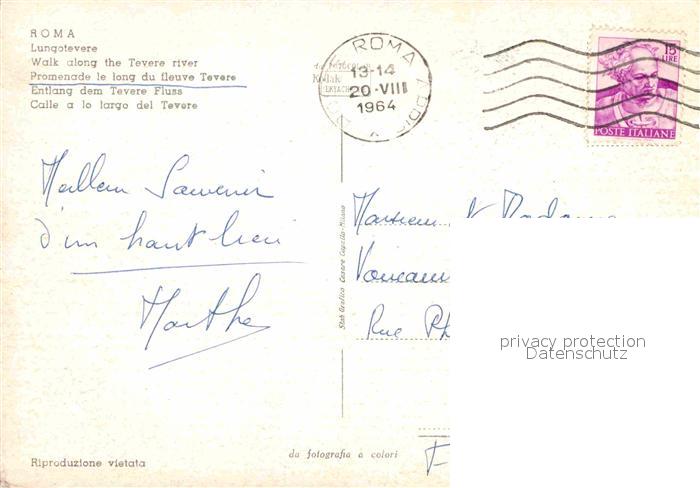 ROMA
Lungotevere
Walk along the Tevere river
Promenade le long du fleuve Tevere
Entlang dem Tevere Fluss
Calle a lo largo del Tevere
ROMA
13-14
20·VIII
1964
15
LIRE
POSTE ITALIANE
Meilleur Souvenir
d'un haut lieu
Marthe
Monsieur et Madame
Rue
Stab Grafico Cesare Capello-Milano
privacy protection
Datenschutz
da fotografia a colori
F
Riproduzione vietata